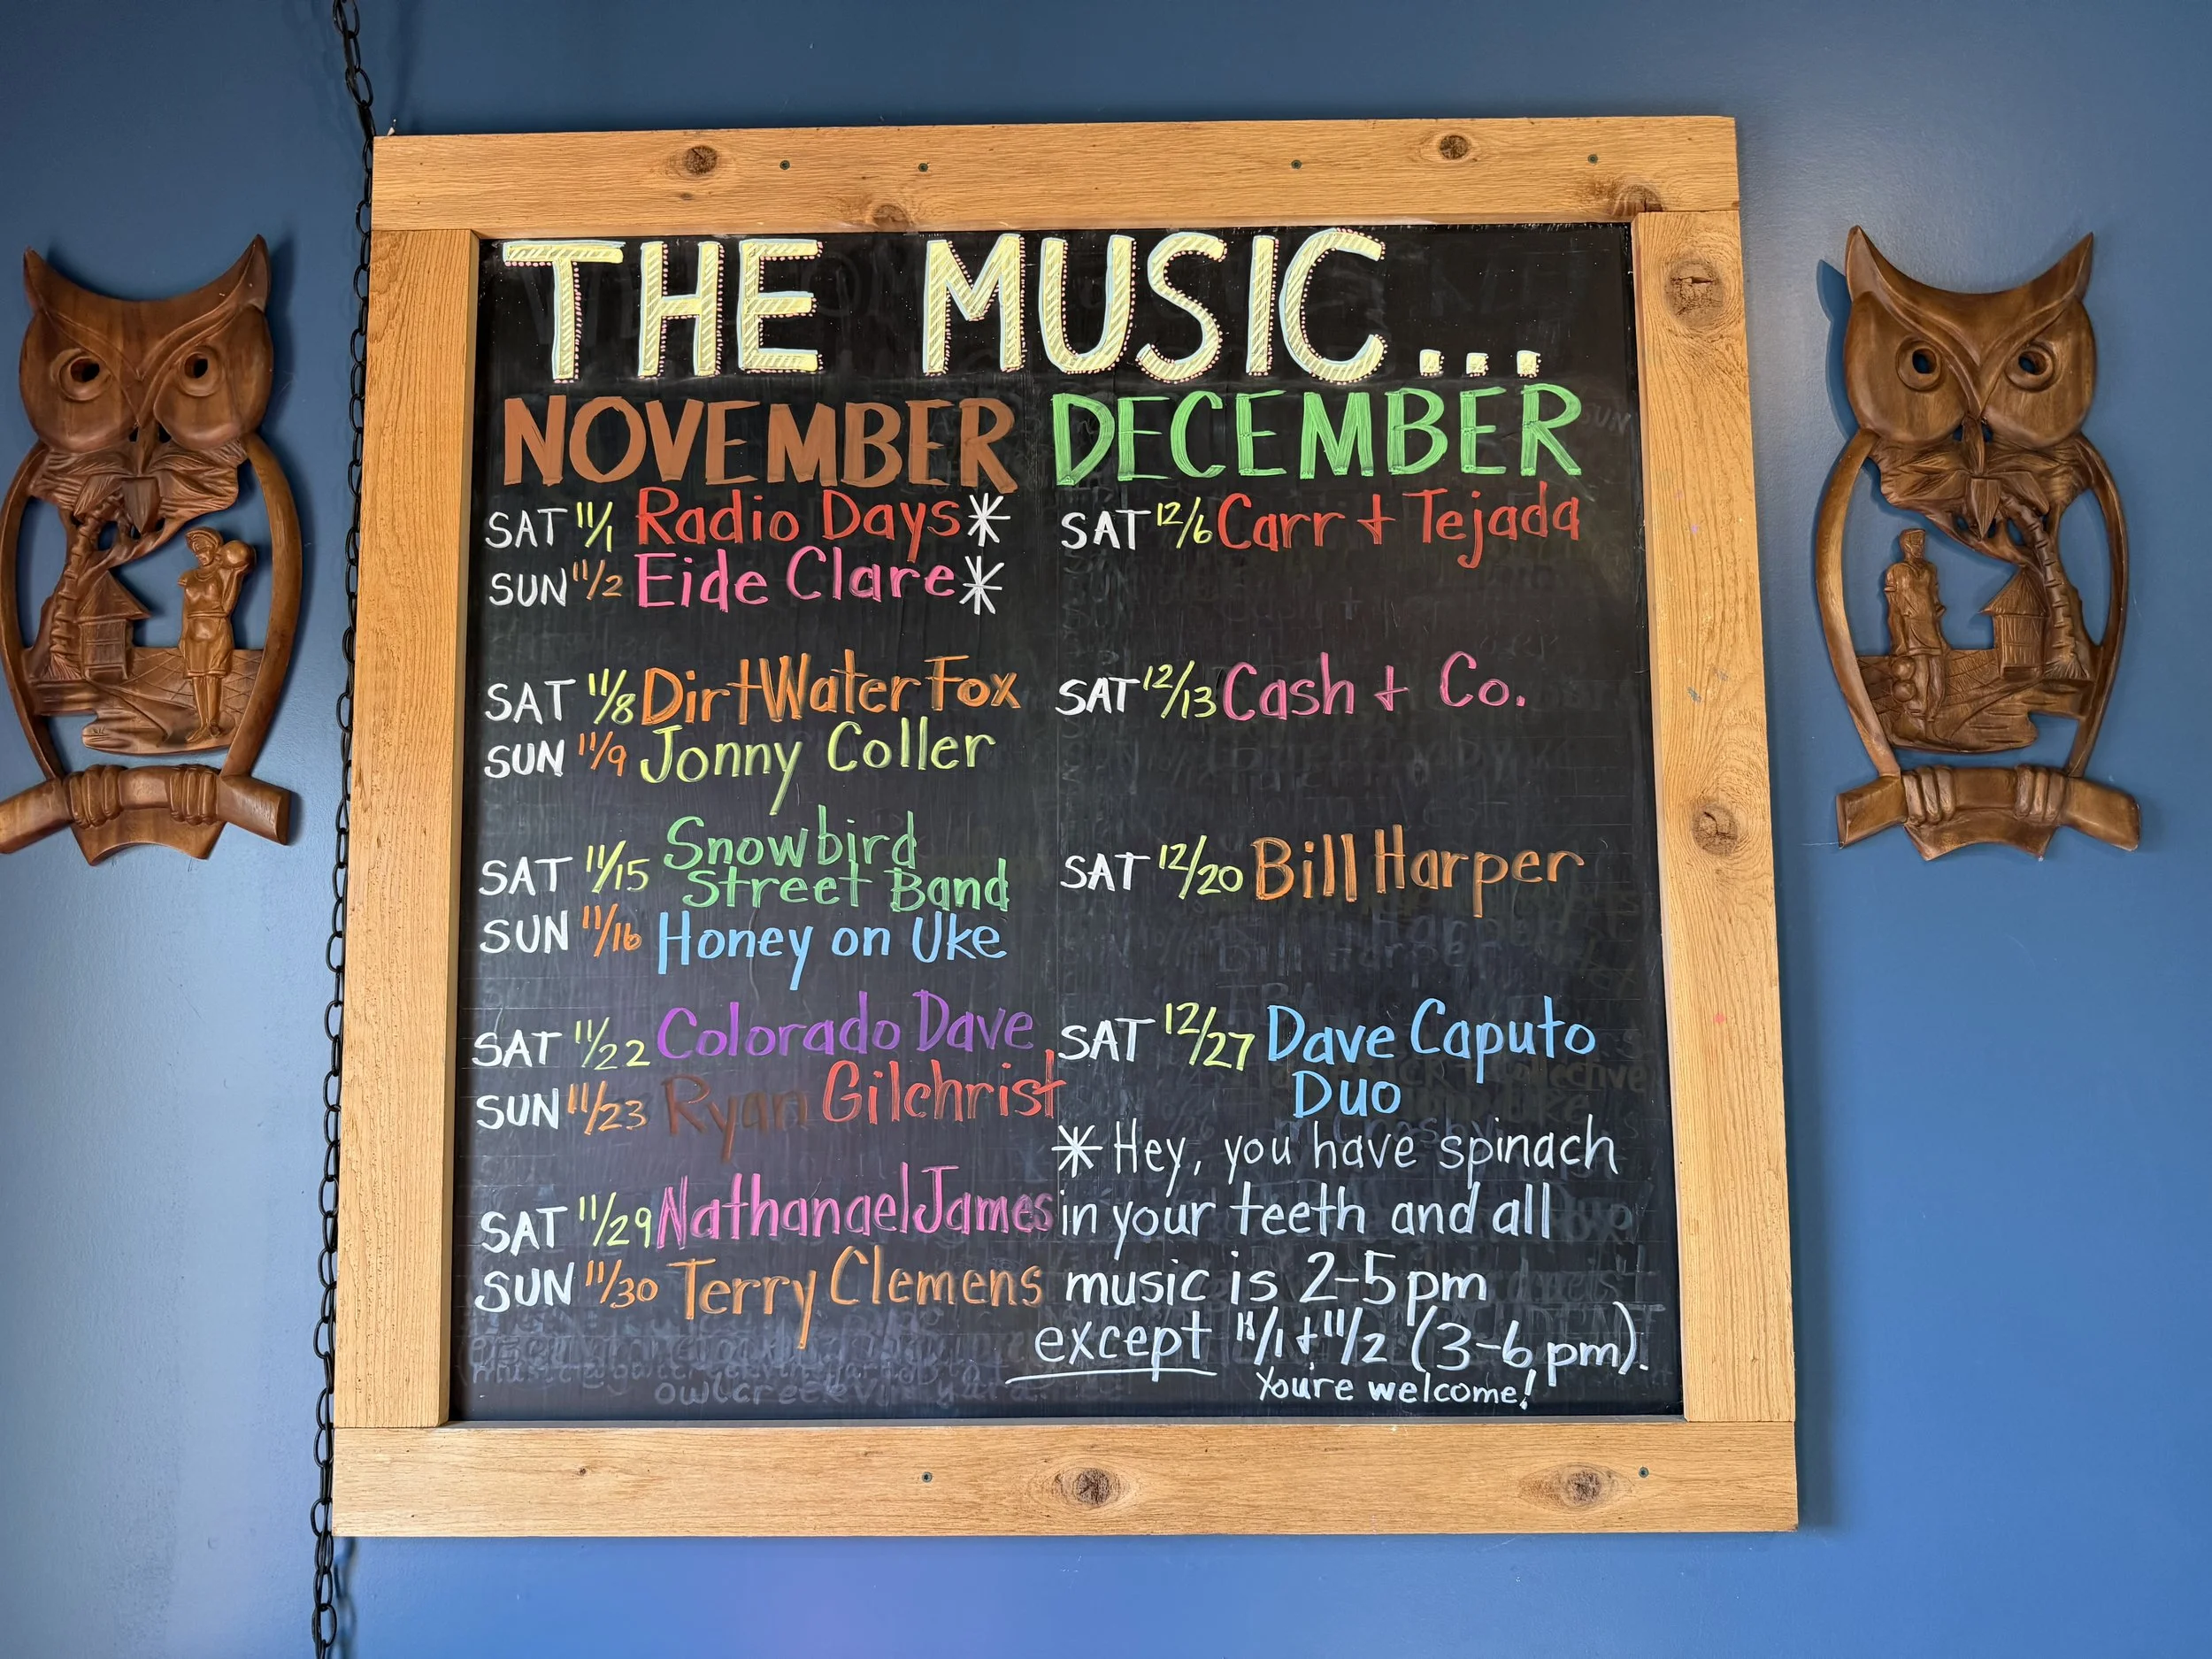 THE MUSIC...
NOVEMBER
SAT 11/1 Radio Days*
SUN 11/2 Eide Clare*
SAT 11/8 Dirt Water Fox
SUN 11/9 Jonny Coller
SAT 11/15 Snowbird
Street Band
SUN 11/16 Honey on Uke
SAT 11/22 Colorado Dave
SUN 11/23 Ryan Gilchrist
SAT 11/29 Nathanael James
SUN 11/30 Terry Clemens
DECEMBER
SAT 12/6 Carr + Tejada
SAT 12/13 Cash + Co.
SAT 12/20 Bill Harper
SAT 12/27 Dave Caputo
Duo
* Hey, you have spinach
in your teeth and all
music is 2-5pm
except 11/1 + 11/2 (3-6pm).
You're welcome!